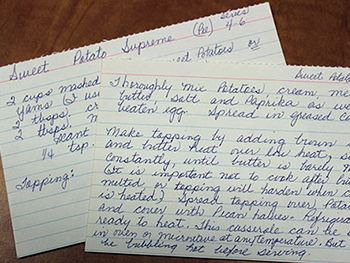 Sweet Potato Supreme (Pee) Serves 4-6
2 cups mashed Sweet Potatoes or
Yams (I us
2 tbsps. cr
2 tbsps. m
1/4 tsp.
Topping:
Sweet Potato
Thoroughly mix Potatoes, cream, me
butter, Salt and Paprika as we
beaten egg. Spread in greased Ca
Make topping by adding brown s
and butter heat over low heat, s
constantly, until butter is barely m
(It is important not to cook after bu
melted, or topping will harden when c
is heated) Spread topping over Potat
and cover with Pecan halves. Refrigera
ready to heat. This casserole can be
in oven or microwave at any temperature. But
be bubbling hot before serving.